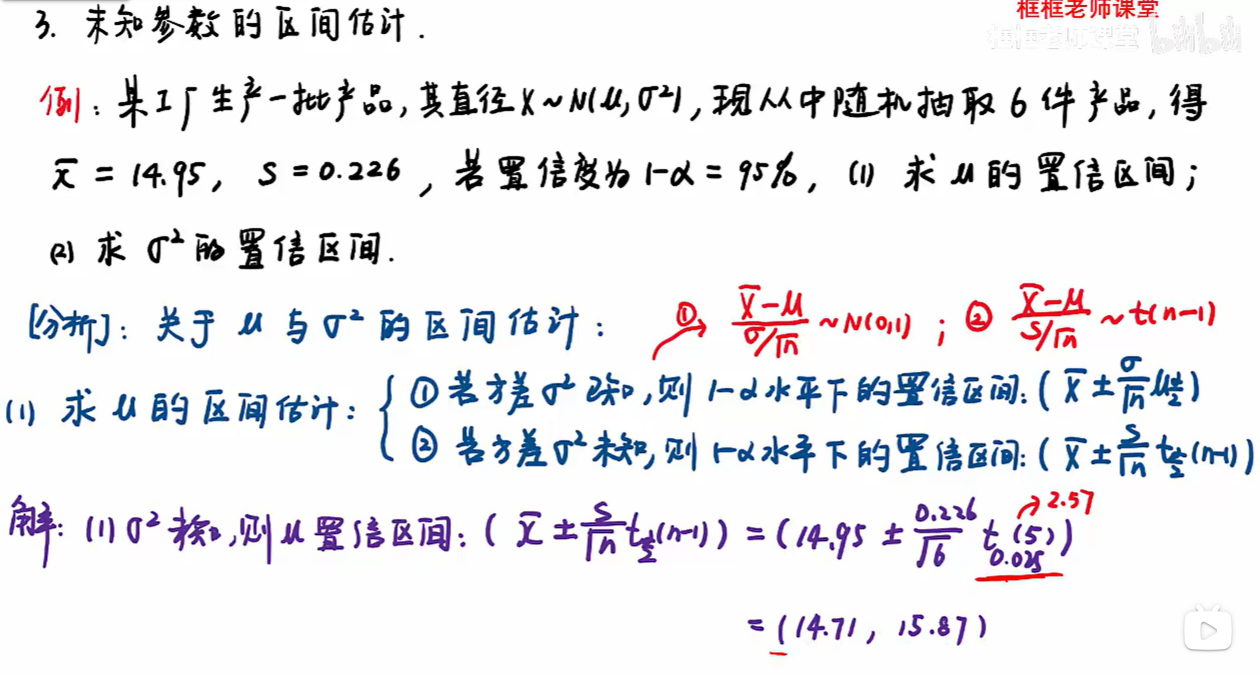 框框老师课堂
框框老师课堂 bilibili
3. 未知参数的区间估计.
例: 某工厂生产一批产品, 其直径X~N(μ,σ²), 现从中随机抽取6件产品, 得
x̄ = 14.95, S = 0.226, 若置信度为1-α = 95%, (1) 求μ的置信区间;
(2) 求σ²的置信区间.
[分析]: 关于μ与σ²的区间估计: ① (X̄-μ)/(σ/√n) ~N(0,1) ; ② (X̄-μ)/(S/√n) ~t(n-1)
(1) 求μ的区间估计:
① 若方差σ²已知, 则1-α水平下的置信区间: (X̄ ± σ/√n μ_{α/2})
② 若方差σ²未知, 则1-α水平下的置信区间: (X̄ ± S/√n t_{α/2}(n-1))
解: (1) σ²未知, 则μ置信区间: (X̄ ± S/√n t_{α/2}(n-1)) = (14.95 ± 0.226/√6 t_{0.025}(5)) → 2.57
= (14.71, 15.87)